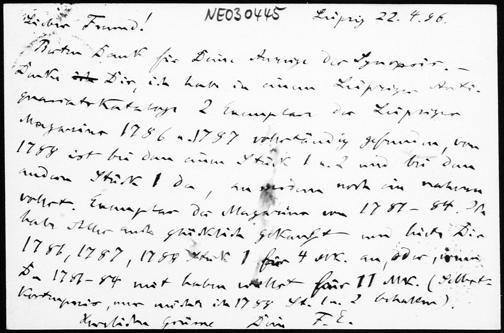 NE030445
Leipzig 22.4.96.
Lieber Freund!
Besten Dank für Deine Anzeige der Synopsis. —
Denke Dir, ich habe in einem Leipziger Anti-
quariatskataloge 2 Exemplare des Leipziger
Magazins 1786 u. 1787 vollständig gefunden, von
1788 ist bei dem einen Stück 1 u. 2 und bei dem
andern Stück 1 da, ausserdem noch ein
vollst. Exemplar des Magazins von 1781–84. Ich
habe Alles auch glücklich gekauft und biete Dir
1786, 1787, 1788 Stück 1 für 4 Mk. an, oder, wenn
Du 1781–84 mit haben willst für 11 Mk. (Selbst-
kostenpreis, nur möchte ich 1788 St. 1 u. 2 behalten).
Herzlichen Gruss Dein F. E.